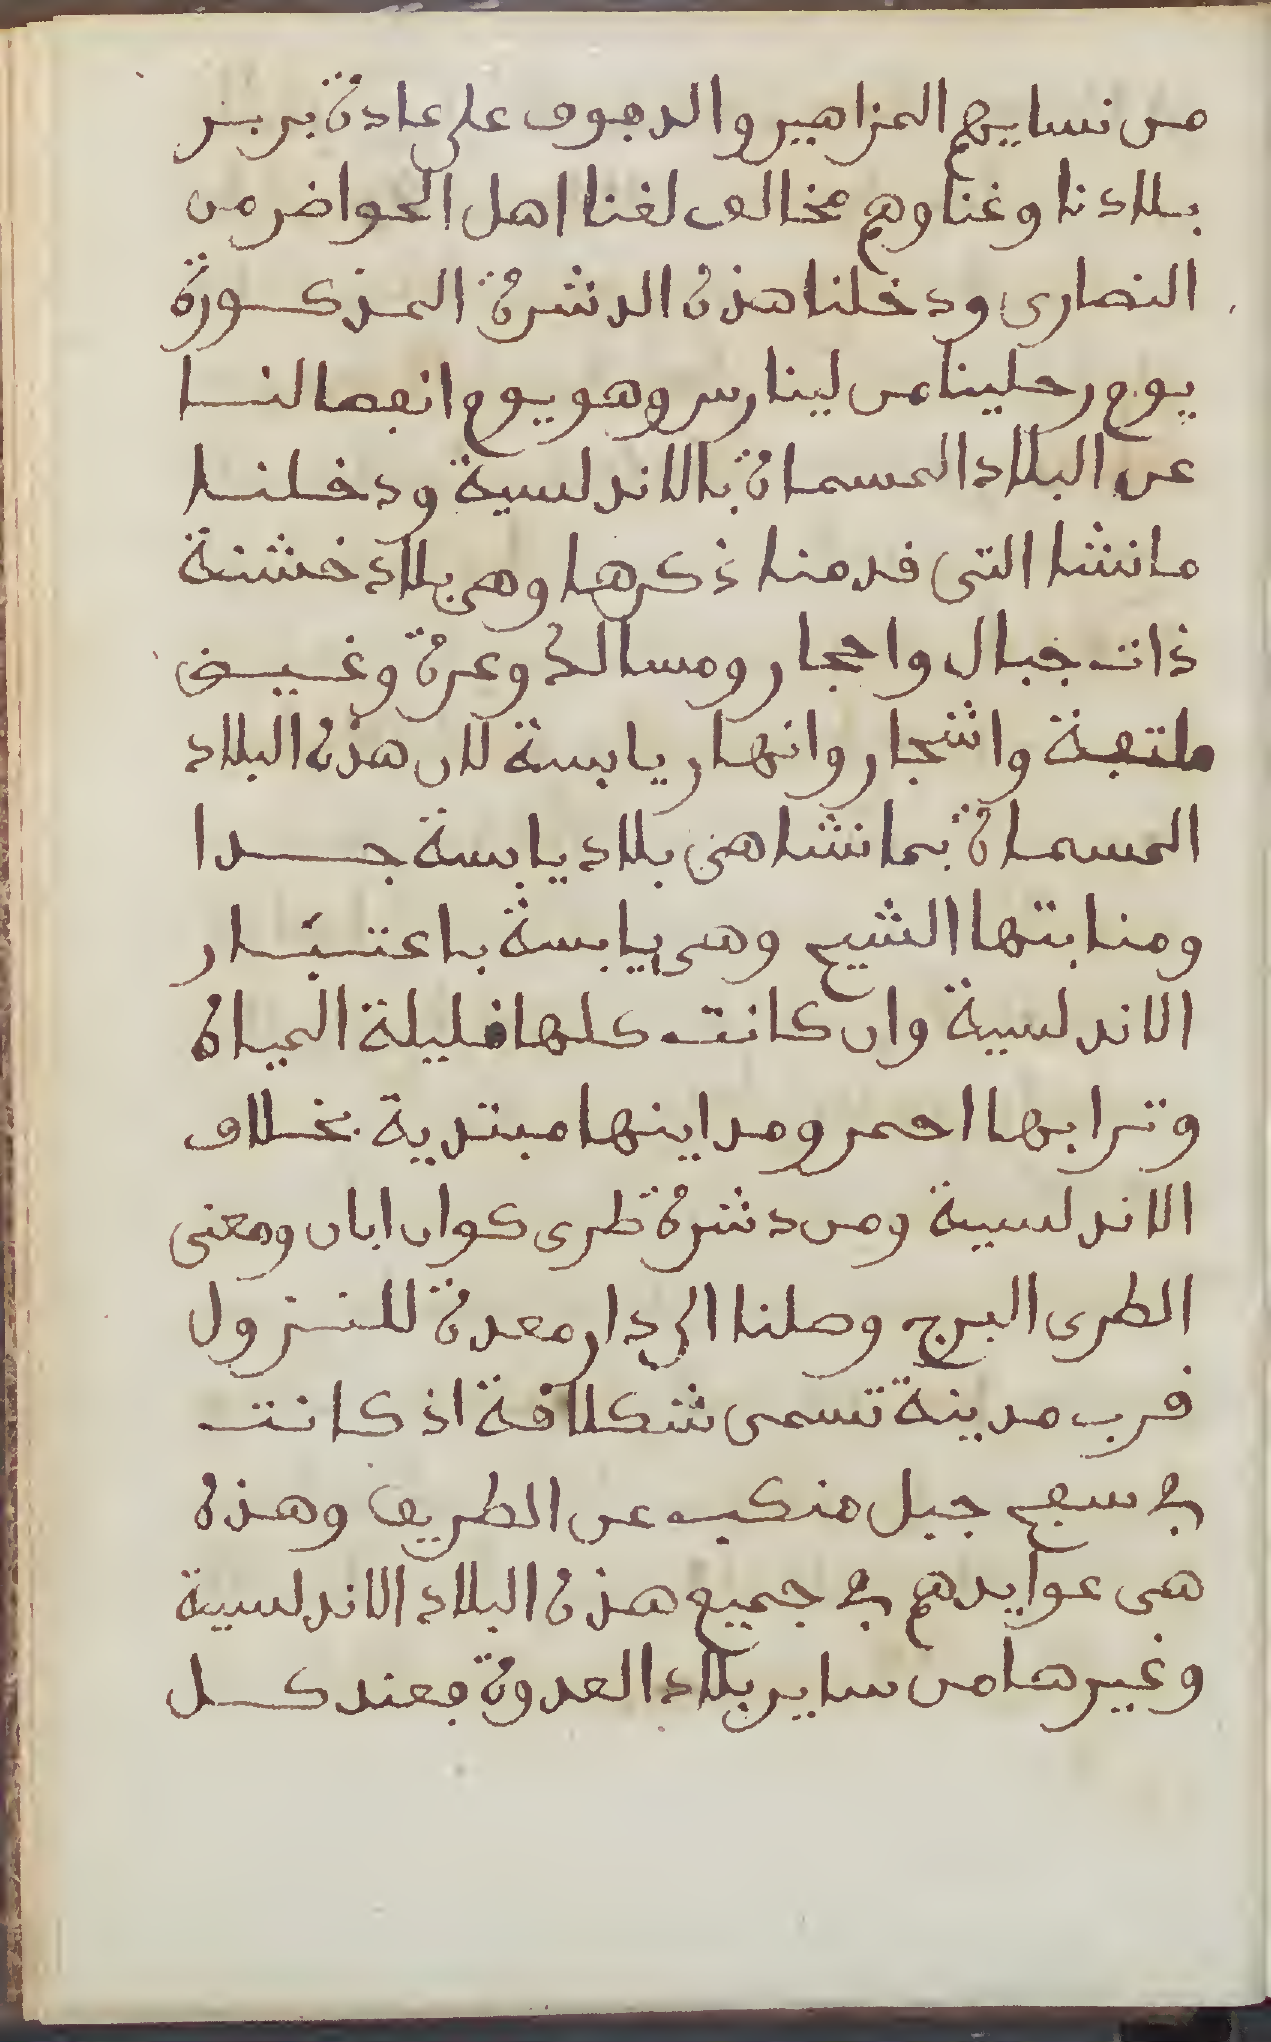 من نسايهم المزاهير والدفوف على عادة بربر
بلادنا وغناوهم مخالف لغنا اهل الحواضر من
النصارى ودخلنا هذه الدشرة المذكورة
يوم رحلينا من لينارس وهو يوم انفصالنا
عن البلاد المسماة بالاندلسية ودخلنا
مانشا التي قدمنا ذكرها وهي بلاد خشنة
ذات جبال واحجار ومسالك وعرة وغيض
ملتفة واشجار وانهار يابسة لان هذه البلاد
المسماة بمانشا هي بلاد يابسة جدا
ومنابتها الشيح وهي يابسة باعتبار
الاندلسية وان كانت كلها قليلة المياه
وترابها احمر ومداينها مبتدية بخلاف
الاندلسية ومن دشرة طرى كوان ابان ومعنى
الطرى البرج وصلنا الى دار معدة للنزول
قرب مدينة تسمى شكلافة اذ كانت
في سفح جبل منكب عن الطريق وهذه
هي عوايدهم في جميع هذه البلاد الاندلسية
وغيرها من ساير بلاد العدوة فعند كل